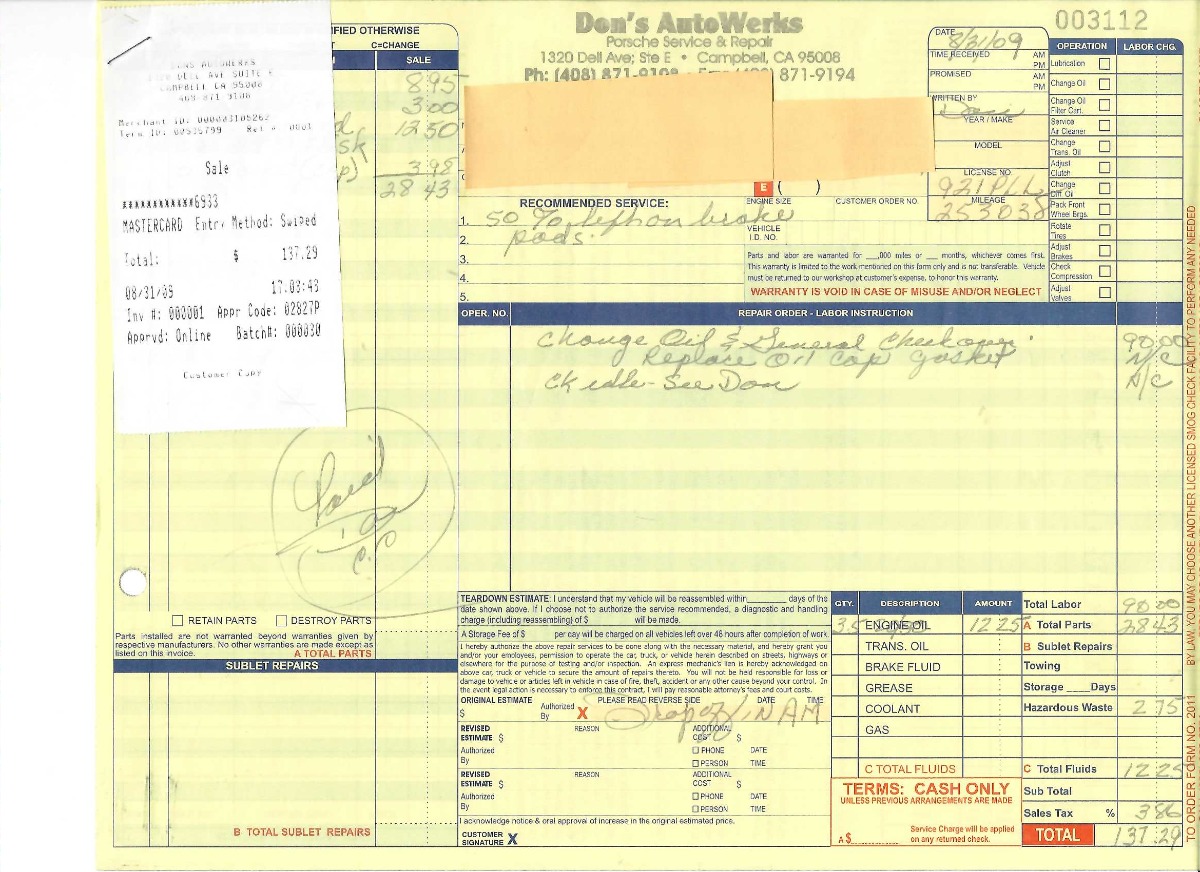 IFIED OTHERWISE
C=CHANGE
SALE
8.95
3.00
12.50
3.98
28 43
DELL AVE SUITE E
CAMPBELL CA 95008
408-871-9108
Merchant ID: 000083105262
Term ID: 00535799 Ref #: 0001
Sale
************6933
MASTERCARD Entry Method: Swiped
Total: $ 137.29
08/31/09 17:03:43
Inv #: 000001 Appr Code: 02827P
Apprvd: Online Batch#: 000030
Customer Copy
Don's AutoWerks
Porsche Service & Repair
1320 Dell Ave; Ste E • Campbell, CA 95008
Ph: (408) 871-9108 871-9194
003112
DATE 8/31/09
TIME RECEIVED AM PM
PROMISED AM PM
WRITTEN BY
YEAR / MAKE
MODEL
LICENSE NO.
MILEAGE
253038
E ( )
ENGINE SIZE
CUSTOMER ORDER NO.
VEHICLE I.D. NO.
OPERATION LABOR CHG.
Lubrication
Change Oil
Change Oil Filter Cart.
Service Air Cleaner
Change Trans. Oil
Adjust Clutch
Change Diff. Oil
Pack Front Wheel Brgs.
Rotate Tires
Adjust Brakes
Check Compression
Adjust Valves
RECOMMENDED SERVICE:
1. 50 % left on brake
2. pads.
3.
4.
5.
Parts and labor are warranted for ___,000 miles or ___ months, whichever comes first.
This warranty is limited to the work mentioned on this form only and is not transferable. Vehicle
must be returned to our workshop at customer's expense, to honor this warranty.
WARRANTY IS VOID IN CASE OF MISUSE AND/OR NEGLECT
OPER. NO. REPAIR ORDER - LABOR INSTRUCTION
Change Oil & General Checkover. 90.00
Replace Oil Cap gasket N/C
ck idle - See Don N/C
Paid
C.C
RETAIN PARTS DESTROY PARTS
Parts installed are not warranted beyond warranties given by
respective manufacturers. No other warranties are made except as
listed on this invoice.
A TOTAL PARTS
SUBLET REPAIRS
B TOTAL SUBLET REPAIRS
TEARDOWN ESTIMATE: I understand that my vehicle will be reassembled within________ days of the
date shown above. If I choose not to authorize the service recommended, a diagnostic and handling
charge (including reassembling) of $ will be made.
A Storage Fee of $ per cay will be charged on all vehicles left over 48 hours after completion of work.
I hereby authorize the above repair services to be done along with the necessary material, and hereby grant you
and/or your employees, permission to operate the car, truck, or vehicle herein described on streets, highways or
elsewhere for the purpose of testing and/or inspection. An express mechanic's lien is hereby acknowledged on
above car, truck or vehicle to secure the amount of repairs thereto. You will not be held responsible for loss or
damage to vehicle or articles left in vehicle in case of fire, theft, accident or any other cause beyond your control. In
the event legal action is necessary to enforce this contract, I will pay reasonable attorney's fees and court costs.
ORIGINAL ESTIMATE PLEASE READ REVERSE SIDE DATE TIME
$ Authorized By X Drop off IN AM
REVISED ESTIMATE $ REASON ADDITIONAL COST $
Authorized By PHONE DATE
PERSON TIME
REVISED ESTIMATE $ REASON ADDITIONAL COST $
Authorized By PHONE DATE
PERSON TIME
I acknowledge notice & oral approval of increase in the original estimated price.
CUSTOMER SIGNATURE X
QTY. DESCRIPTION AMOUNT
ENGINE OIL 12 25
TRANS. OIL
BRAKE FLUID
GREASE
COOLANT
GAS
C TOTAL FLUIDS
TERMS: CASH ONLY
UNLESS PREVIOUS ARRANGEMENTS ARE MADE
A $ Service Charge will be applied on any returned check.
Total Labor 90.00
A Total Parts 28 43
B Sublet Repairs
Towing
Storage ____Days
Hazardous Waste 2 75
C Total Fluids 12 25
Sub Total
Sales Tax % 3 86
TOTAL 137.29
BY LAW, YOU MAY CHOOSE ANOTHER LICENSED SMOG CHECK FACILITY TO PERFORM ANY NEEDED
TO ORDER FORM NO. 2011